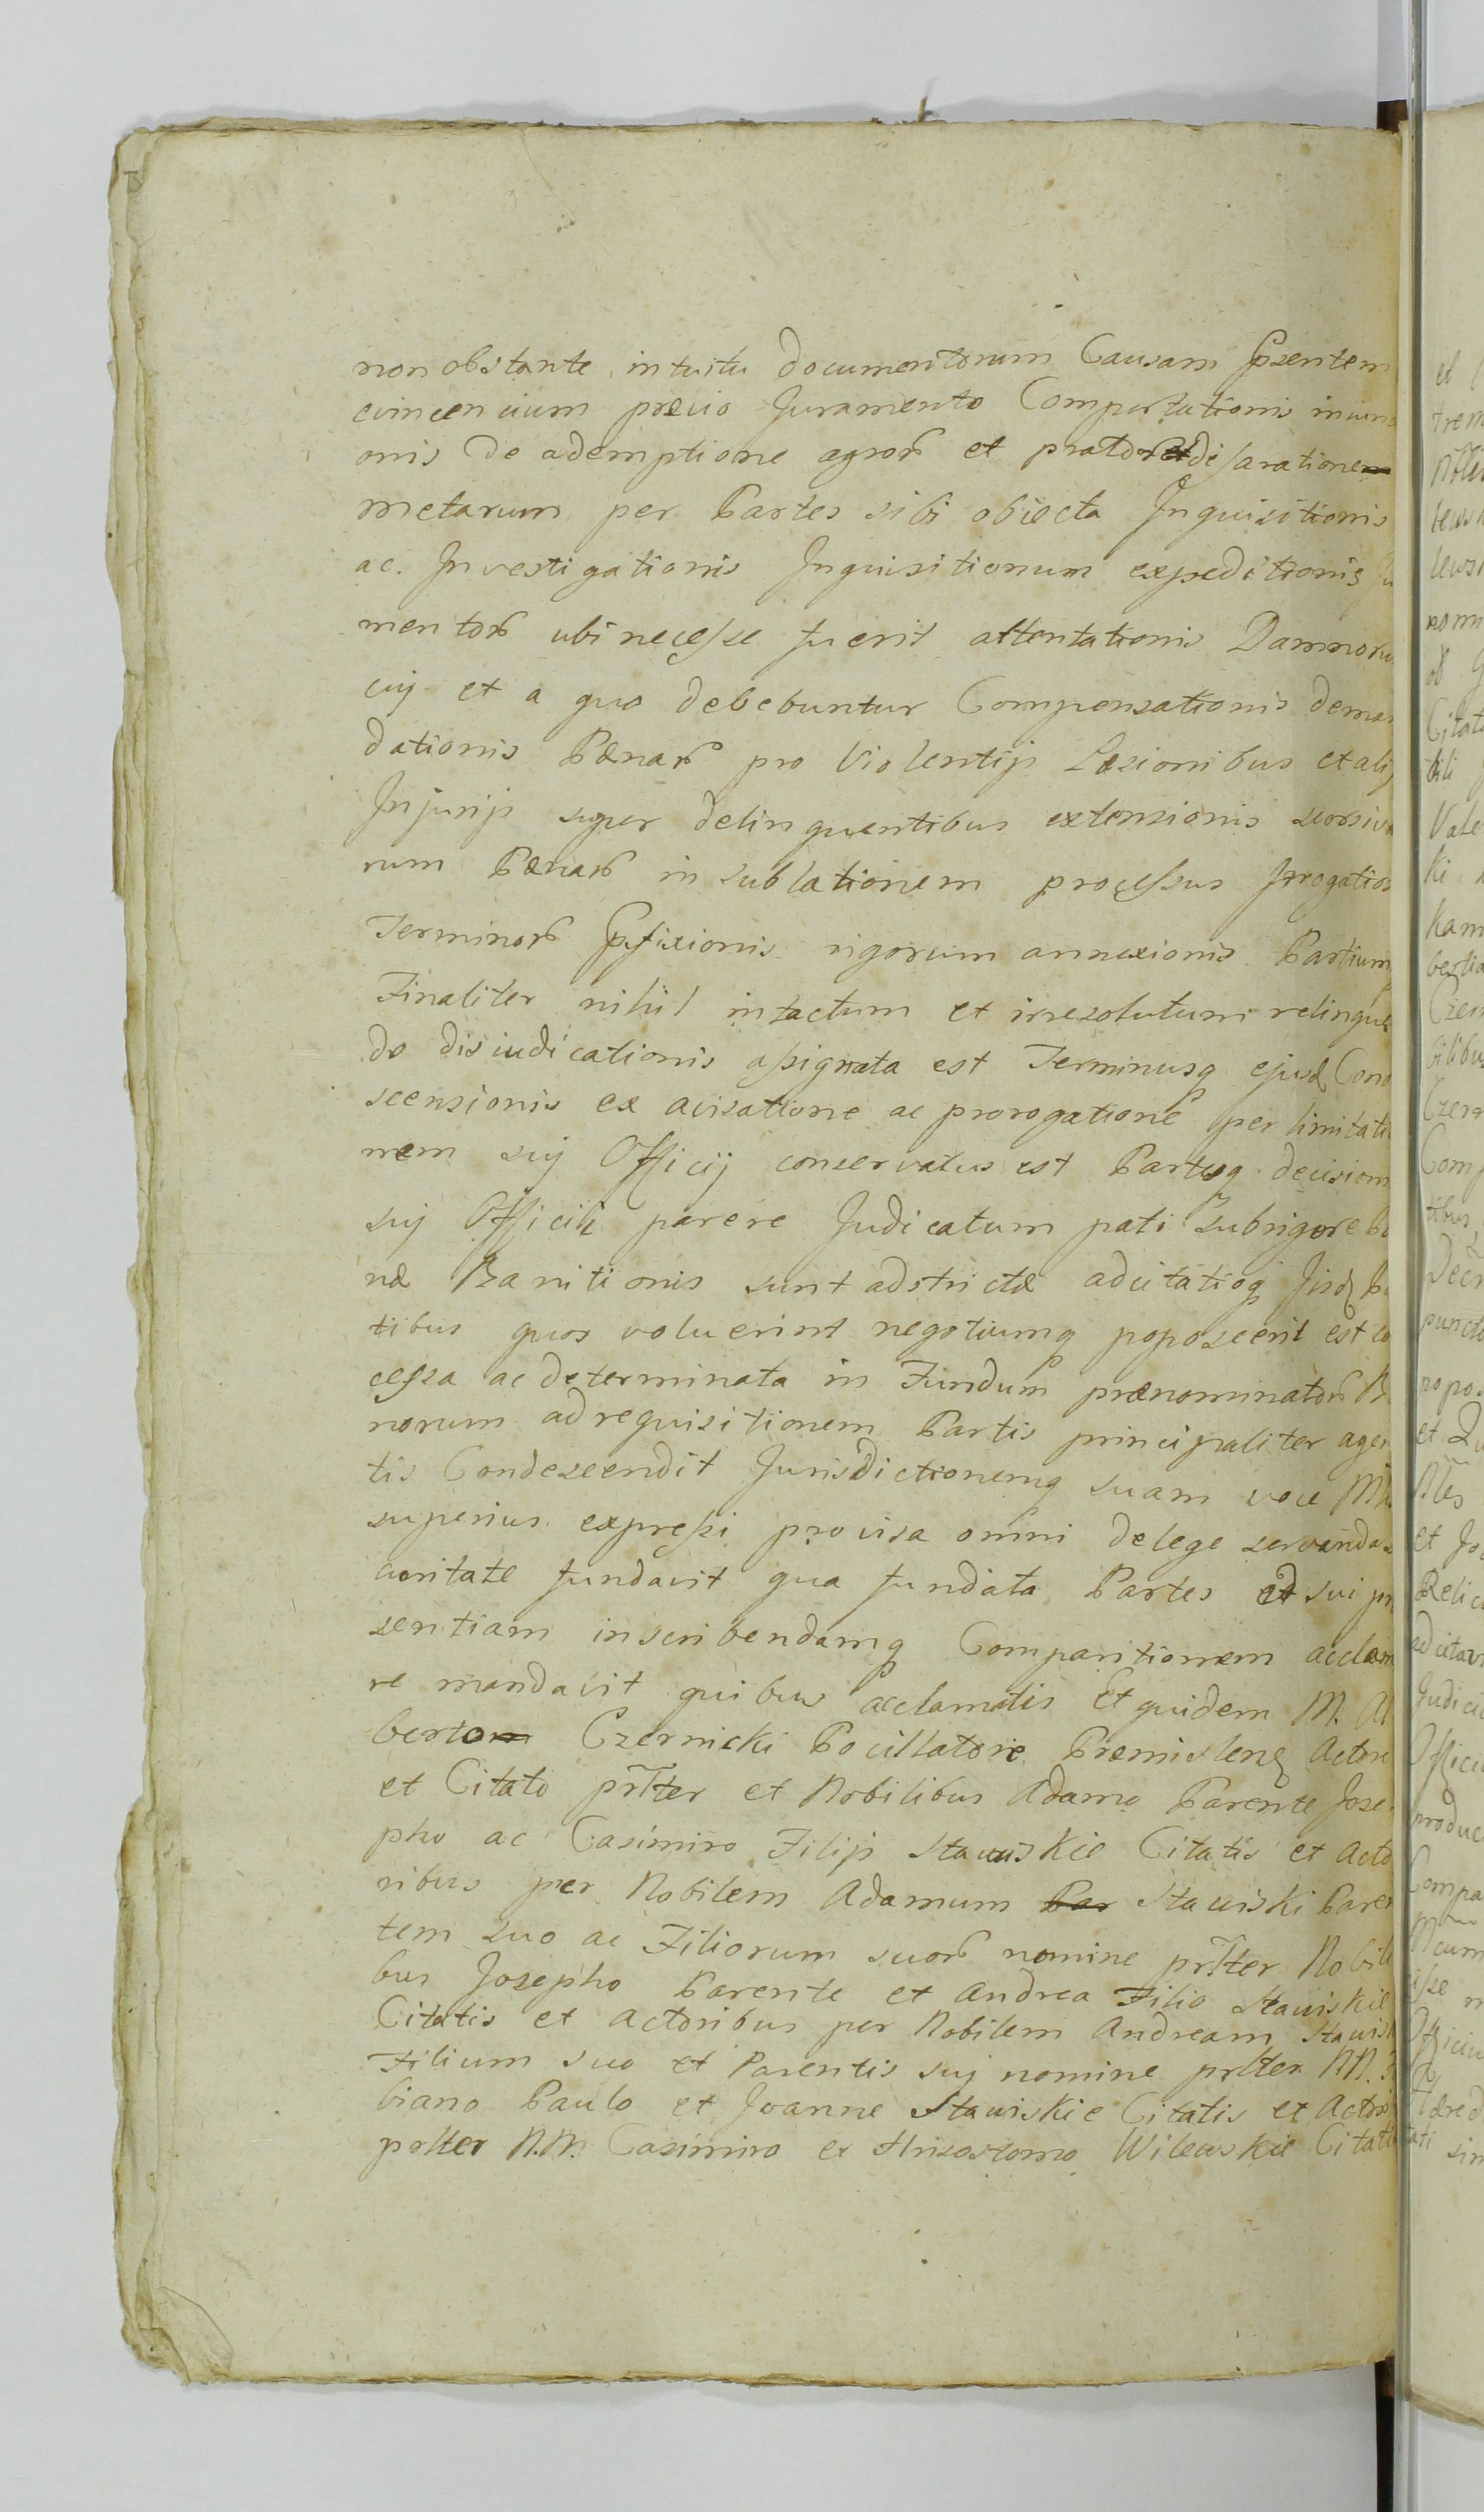 non obstante intuitu documentorum Causam Pntem
evincencium prævio Juramento Comportationis iniun
onis de ademptione agror et prator et disaratione
metarum per Partes sibi obiecta Inquisitionis
ac Investigationis Inquisitionum expeditionis Ju
mentor ubi necesse fuerit attentationis Damnoru
cuj et a quo debebuntur Compensationis deman
dationis Pænar pro Violentijs Læsionibus et alijs
Injurijs super delinquentibus extensionis seorsiva
rum Pænar in sublationem processus Irrogatio
Terminor Præfixionis rigorum annexionis Partium
Finaliter nihil intactum et irresolutum relinque
do disiudicationis assignata est Terminusq ejusd Cond
scensionis ex avisatione ac prorogatione per limitatio
nem suj Officij conservatus est Partesq decisioni
suj Officij parere Judicatum pati sub rigore Pæ
næ Banitionis sunt adstrictæ adcitatioq Jisd Pa
tibus quos voluerint negotiumq poposcerit est co
cessa ac determinata in Fundum prænominator B
norum ad requisitionem Partis principaliter agen
tis Condescendit Jurisdictionemq suam voce Mi
superius expressi provisa omni de lege servanda s
curitate fundavit qua fundata Partes ad sui præ
sentiam inscribendamq Comparitionem acclam
re mandavit quibus acclamatis Et quidem M. Al
berto Czernicki Pocillatore Præmislens Actore
et Citato prlter et Nobilibus Adamo Parente Jose
pho ac Casimiro Filijs Stawiskie Citatis et Acto
ribus per Nobilem Adamum Par Stawiski Paren
tem suo ac Filiorum suor nomine prlter Nobili
bus Josepho Parente et Andrea Filio Stawiskie
Citatis et Actoribus per Nobilem Andream Stawisk
Filium suo et Parentis suj nomine prlter NN.
biano Paulo et Joanne Stawiskie Citatis et Actor
prlter N.N. Casimiro et Hrisostomo Wilewskie Citati